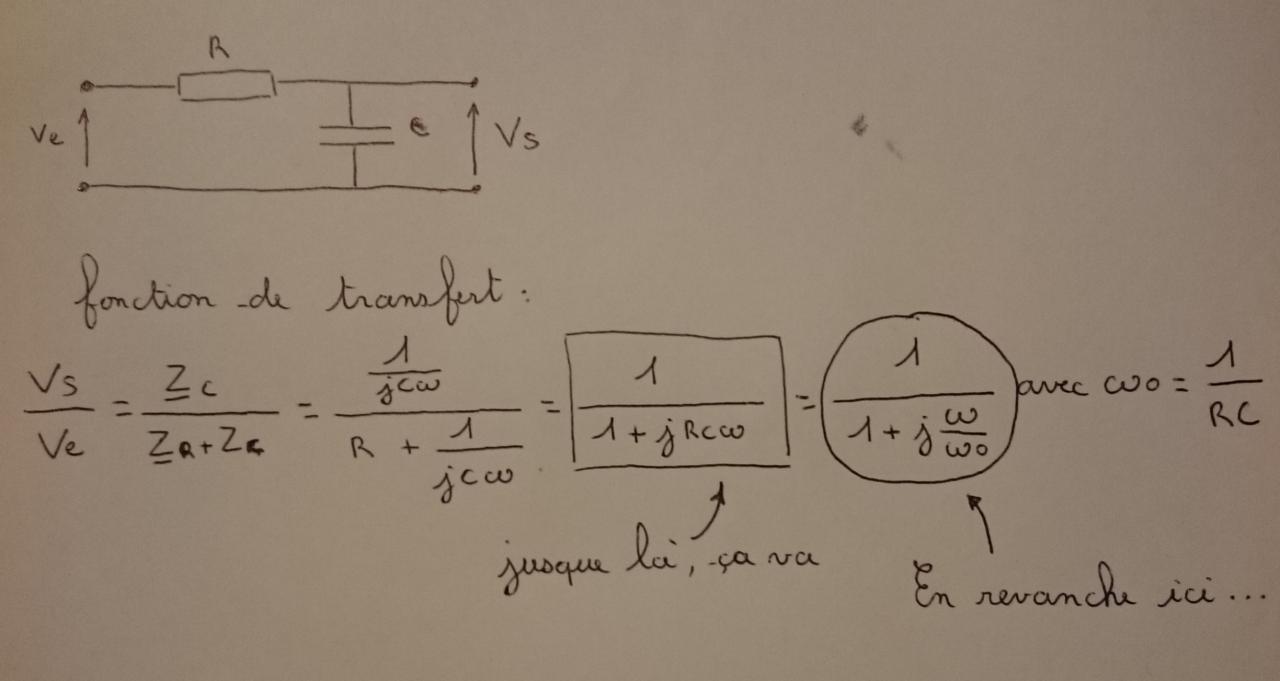 R
Ve
C
Vs
fonction de transfert :
Vs/Ve = Zc/(ZR+Zc) = (1/jCω)/(R + 1/jCω) = 1/(1 + jRCω) = 1/(1 + j ω/ω0) avec ω0 = 1/RC
jusque là, ça va
En revanche ici ...